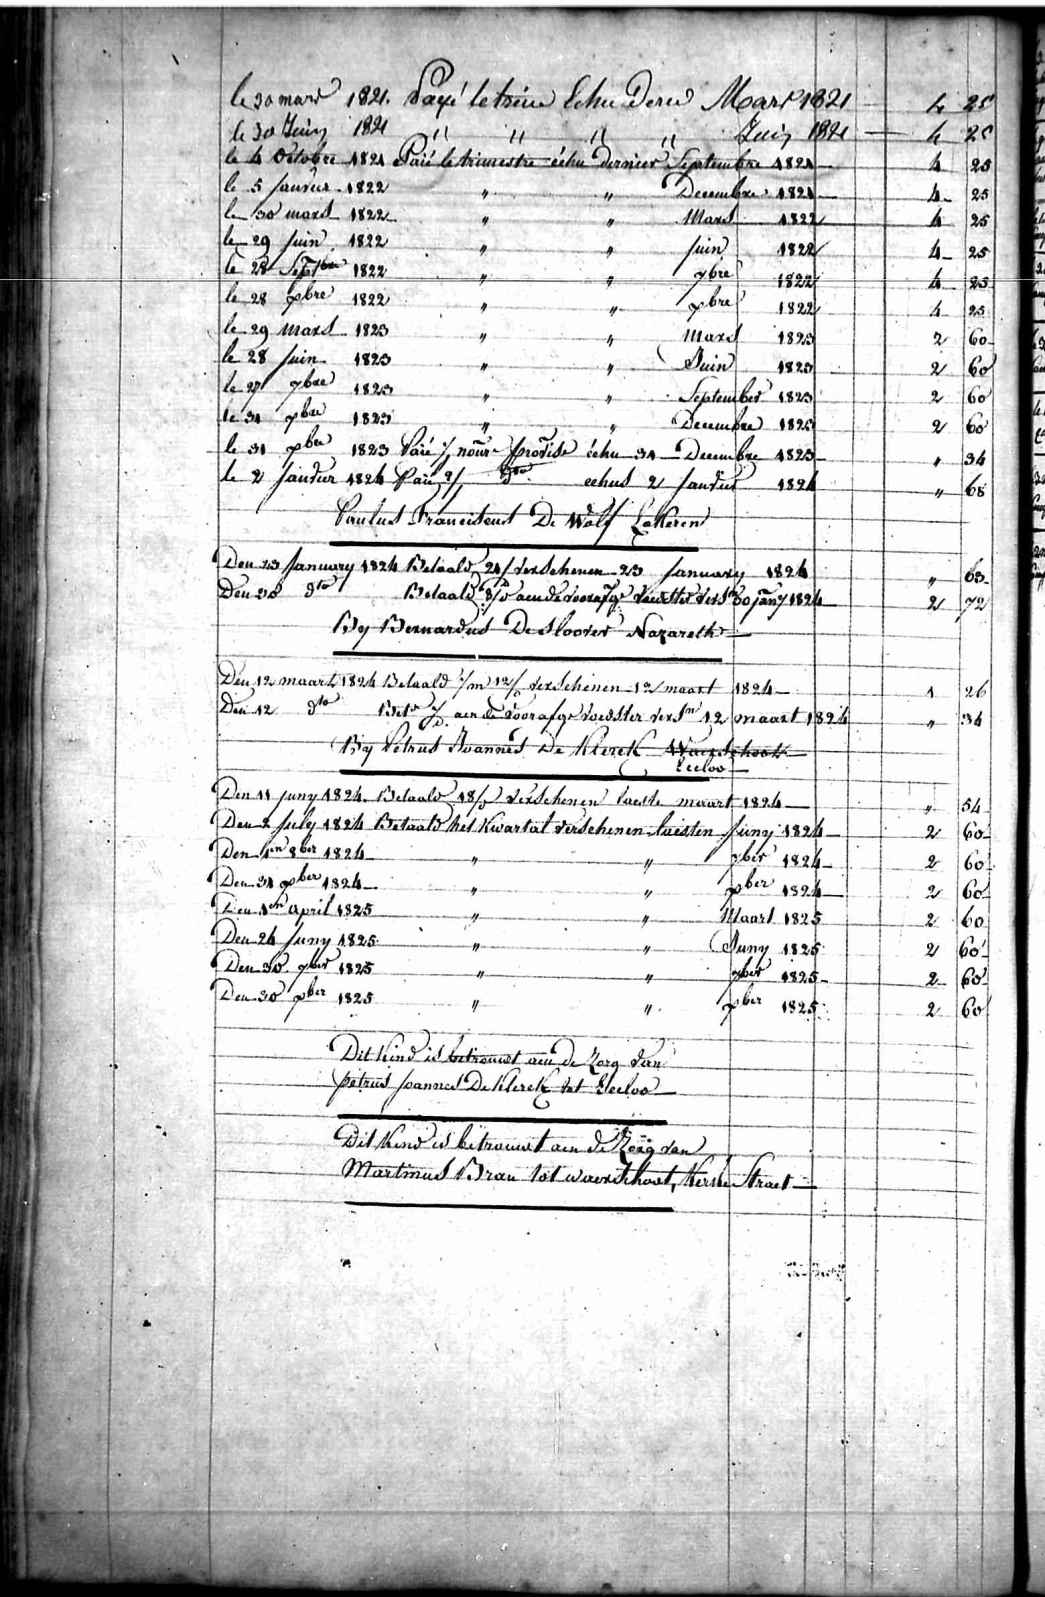 le 30 mars 1821. Payé le trim Echu Dern Mars 1821 4 25
le 30 Juin 1821 " " " " Juin 1821 4 25
le 4 Octobre 1821 Paié le trimestre échu dernier Septembre 1821 4 25
le 5 Janvier 1822 " " Decembre 1821 4 25
le 30 mars 1822 " " Mars 1822 4 25
le 29 Juin 1822 " " Juin 1822 4 25
le 28 Septbre 1822 " " 7bre 1822 4 25
le 28 Xbre 1822 " " Xbre 1822 4 25
le 29 mars 1823 " " Mars 1823 2 60
le 28 Juin 1823 " " Juin 1823 2 60
le 27 7bre 1823 " " September 1823 2 60
le 31 Xbre 1823 " " Decembre 1823 2 60
le 31 Xbre 1823 Paié nourre provise échu 31 Decembre 1823 " 34
le 2 Janvier 1824 Paié dto echus 2 Janvier 1824 " 68
Paulus Franciscus De Wolf Lokeren
Den 23 January 1824 Betaald verschenen 23 January 1824 " 63
Den 30 dto Betaald aen de voorafge voedster vers 30 Jany 1824 2 72
By Bernardus De Sloover Nazareth
Den 12 maart 1824 Betaald verschenen 12 maart 1824 1 26
Den 12 dto aen de voorafge voedster vers 12 maart 1824 " 34
By Petrus Joannes De Klerck Waerschoot
Eecloo
Den 11 Juny 1824 Betaald verschenen laeste maart 1824 " 54
Den 2 July 1824 Betaald het Kwartal verschenen laesten Juny 1824 2 60
Den 1en 8ber 1824 " " 7ber 1824 2 60
Den 31 Xber 1824 " " Xber 1824 2 60
Den 1en April 1825 " " Maart 1825 2 60
Den 24 Juny 1825 " " Juny 1825 2 60
Den 30 7ber 1825 " " 7ber 1825 2 60
Den 30 Xber 1825 " " Xber 1825 2 60
Dit Kind is betrouwt aen de Zorg van
petrus Joannes De Klerck tot Eecloo
Dit Kind is betrouwt aen de Zorg van
Martinus Brau tot waerschoot, Kerke Straet